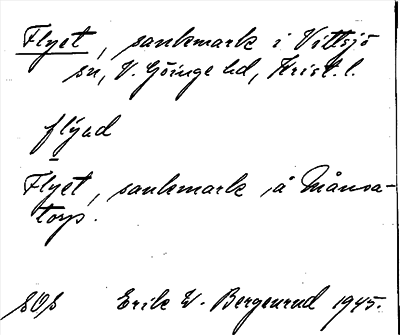 Flyet, sankmark i Vittsjö
sn, V. Göinge hd, Krist. l.
flýəd
Flyet, sankmark å Månsa-
torp.
SOS Erik W. Bergenrud 1945.